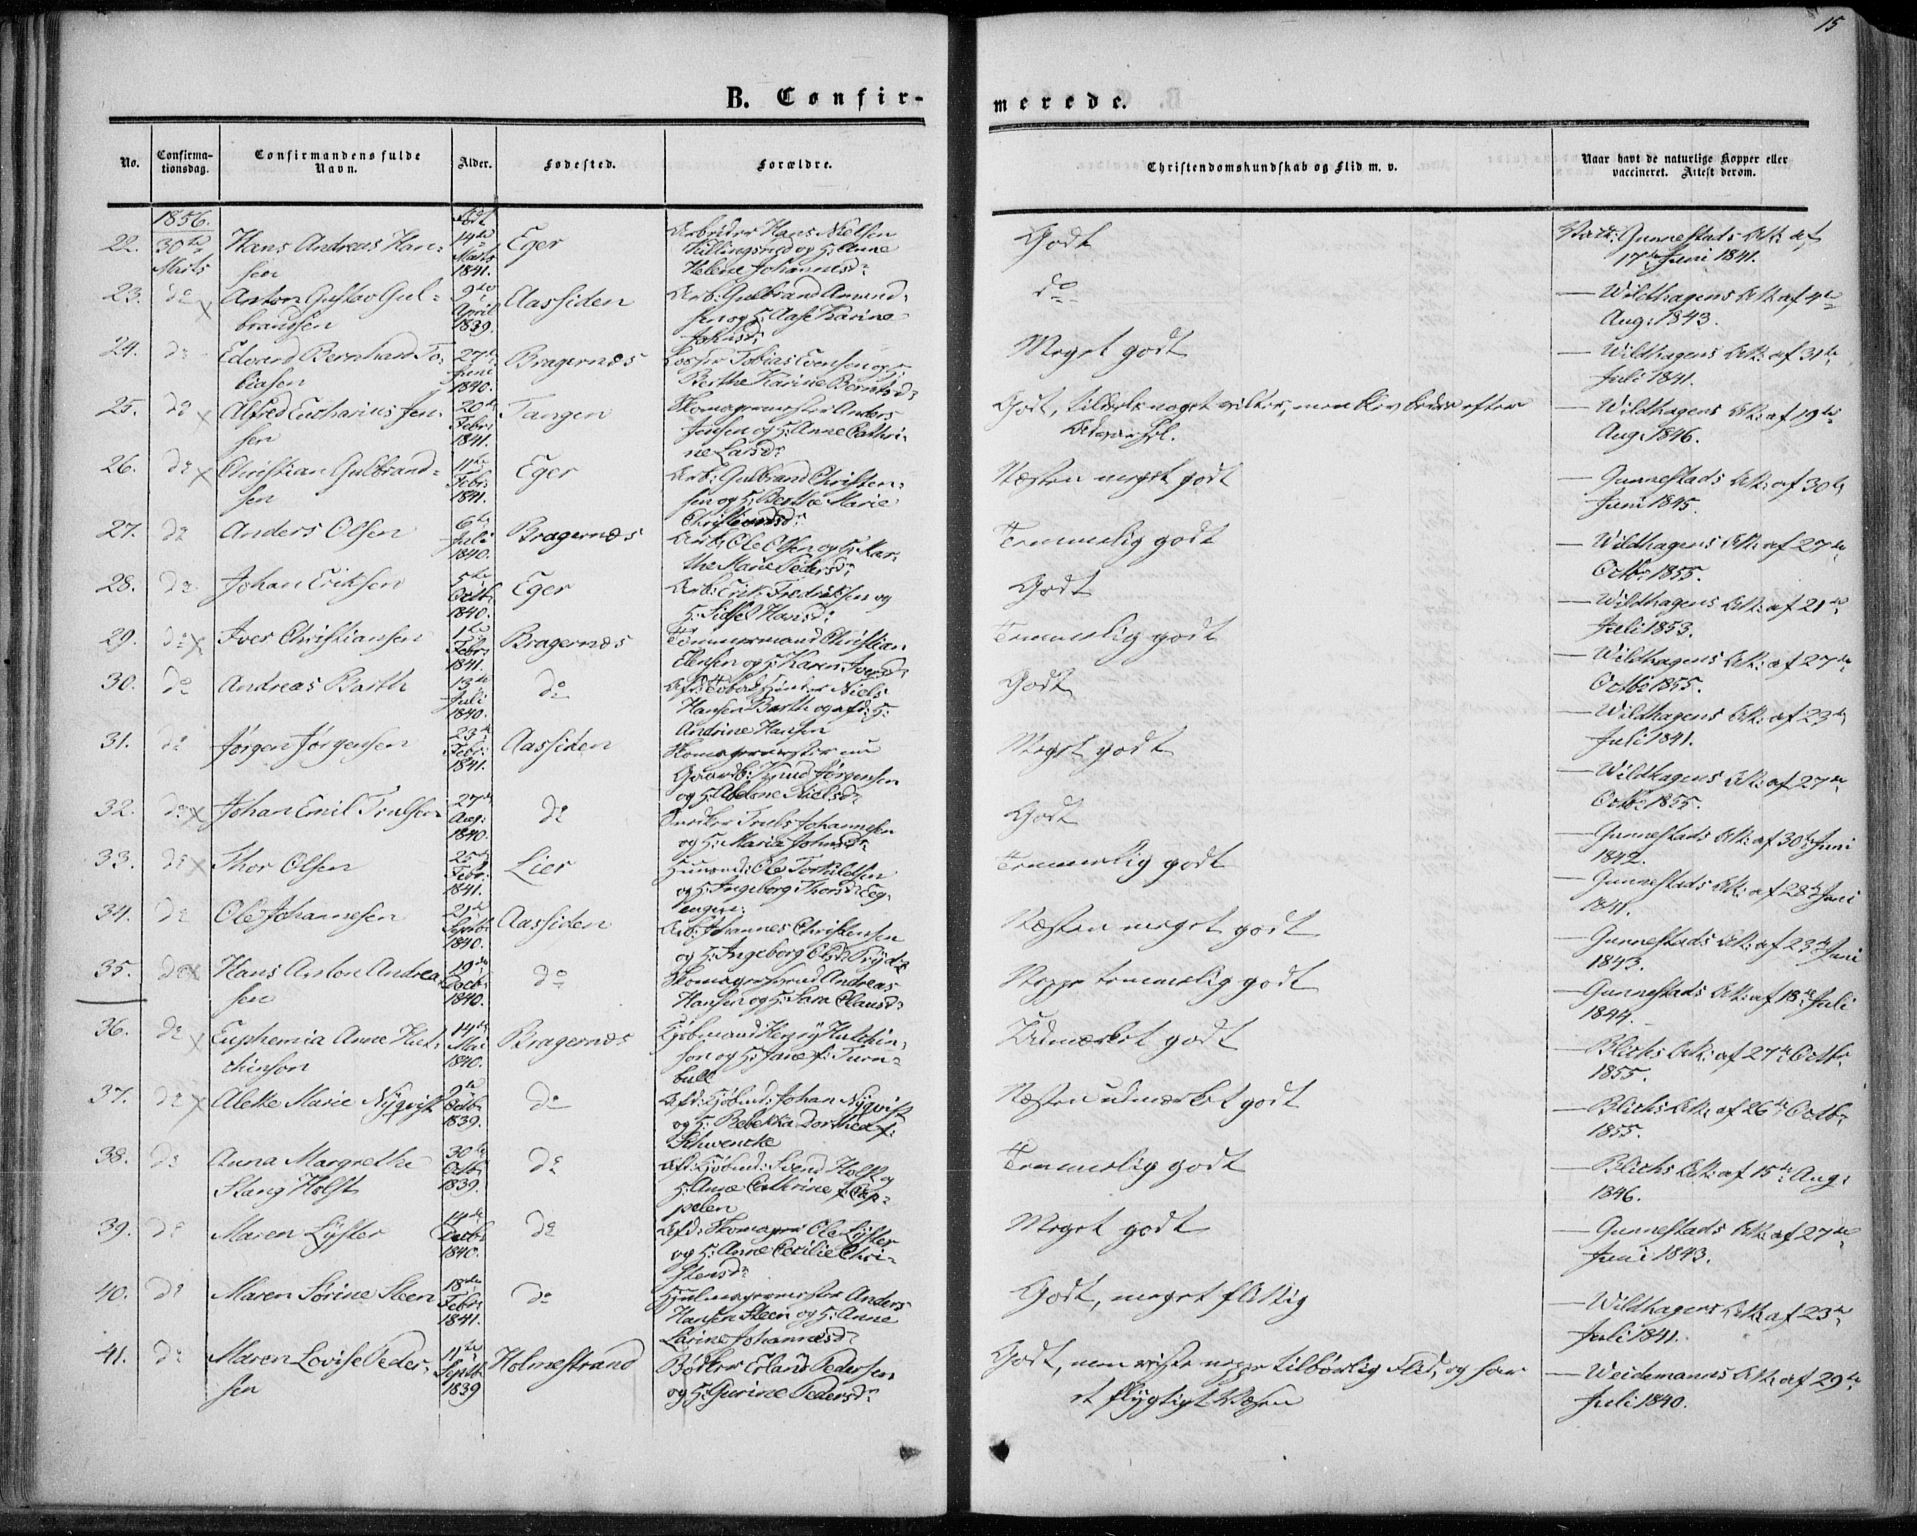 15
B. Confirmerede.
No. Confirmationsdag. Confirmandens fulde Navn. Alder. Fødested. Forældre. Christendomskundskab og Flid m. v. Naar havt de naturlige Kopper eller vaccineret. Attest derom.
1856. Født
22. 30te Marts Hans Andreas Hansen 14de Marts 1841. Eger Arbeider Hans Nielsen og H: Anne Helene Johannesdr Godt Vacc: Gunnestads Att: af 17de Juni 1841.
23. do x Anton Gustav Gulbrandsen 9de April 1839. Aassiden Arb: Gulbrand Amundsen og H: Aase Karine Johnsdr do — Wildhagens Att: af 4de Aug: 1843.
24. do Edvard Bernhard Tobiasen 27de Juni 1840. Bragernæs Tobias Evensen og H: Berthe Karine Berntsdr Meget godt — Wildhagens Att: af 31te Juli 1841.
25. do x Alfred Eucharius Jensen 20de Febr: 1841. Tangen Skomagermester Anders Jensen og H: Anne Cathrine Larsdr Godt, tildels noget men blev bedre efter — Wildhagens Att: af 19de Aug: 1846.
26. do x Christian Gulbrandsen 11te Febr: 1841. Eger Arb: Gulbrand Christensen og H: Berthe Marie Christiansdr Næsten meget godt — Gunnestads Att: af 30te Juni 1845.
27. do Anders Olsen 6te Juli 1840. Bragernæs Arb: Ole Olsen og H: Marthe Marie Pedersdr Temmelig godt — Wildhagens Att: af 27de Octbr 1855.
28. do Johan Eriksen 5te Octb: 1840. Eger Arb: Erik Fredriksen og H: Sidsel Hansdr Godt — Wildhagens Att: af 21de Juli 1853.
29. do x Iver Christiansen 1ste Febr: 1841. Bragernæs Tømmermand Christian Ellensen og H: Karen Iversdr Temmelig godt — Wildhagens Att: af 27de Octbr 1855.
30. do Andreas Barth 13de Juli 1840. do Niels Hansen Barth og afd: H: Andrine Hansen Godt — Wildhagens Att: af 23de Juli 1841.
31. do Jørgen Jørgensen 23de Febr: 1841. Aassiden Skomagermester nu Gaardb: Knud Jørgensen og H: Abelone Nielsdr Meget godt — Wildhagens Att: af 27de Octbr 1855.
32. do x Johan Emil Trulsen 27de Aug: 1840. do Snedker Truls Johannesen og H: Maria Johnsdr Godt — Gunnestads Att: af 30te Juni 1842.
33. do x Thor Olsen 25de Febr: 1841. Lier Huusmd: Ole Torkildsen og H: Ingeborg Thorsdr Temmelig godt — Gunnestads Att: af 28de Juni 1841.
34. do Ole Johannesen 21de Septbr 1840. Aassiden Arb: Johannes Christensen og H: Ingeborg Olsdr Næsten meget godt — Gunnestads Att: af 23de Juni 1843.
35. do x Hans Anton Andreasen 19de Octb: 1840. do Skomagersvend Andreas Hansen og H: Sara Clausdr Neppe temmelig godt — Gunnestads Att: af 18de Juli 1844.
36. do x Euphemia Anne Hutchinson 14de Mai 1840. Bragernæs Kjøbmand Henry Hutchinson og H: Jane f: Turnbull Udmærket godt — Blichs Att: af 27de Octbr 1855.
37. do x Alette Marie Nyqvist 9de Octb: 1839. do Afd: Kjøbmd: Johan Nyqvist og H: Rebekka Dorthea f: Schwencke Næsten udmærket godt — Blichs Att: af 26de Octbr 1855.
38. do Anna Margrethe Stang Holst 30te Octb: 1839. do Afd: Kjøbmd: Svend Holst og H: Anne Cathrine f: Cappelen Temmelig godt — Blichs Att: af 15de Aug: 1846.
39. do Maren Lyster 14de Octb: 1840. do Afd: Skomager Ole Lyster og H: Anne Cecilie Christensdr Meget godt — Gunnestads Att: af 27de Juni 1843.
40. do Maren Sørine Steen 18de Febr: 1841. do Hjulmagermester Anders Hansen Steen og H: Anne Larine Johannesdr Godt, meget flittig — Wildhagens Att: af 23de Juli 1841.
41. do Maren Lovise Pedersen 11te Septb: 1839 Holmestrand Bødker Erland Pedersen og H: Gurine Pedersdr Godt, men viste neppe tilbørlig Flid, og har et flygtigt Væsen — Weidemanns Att: af 29de Juli 1840.